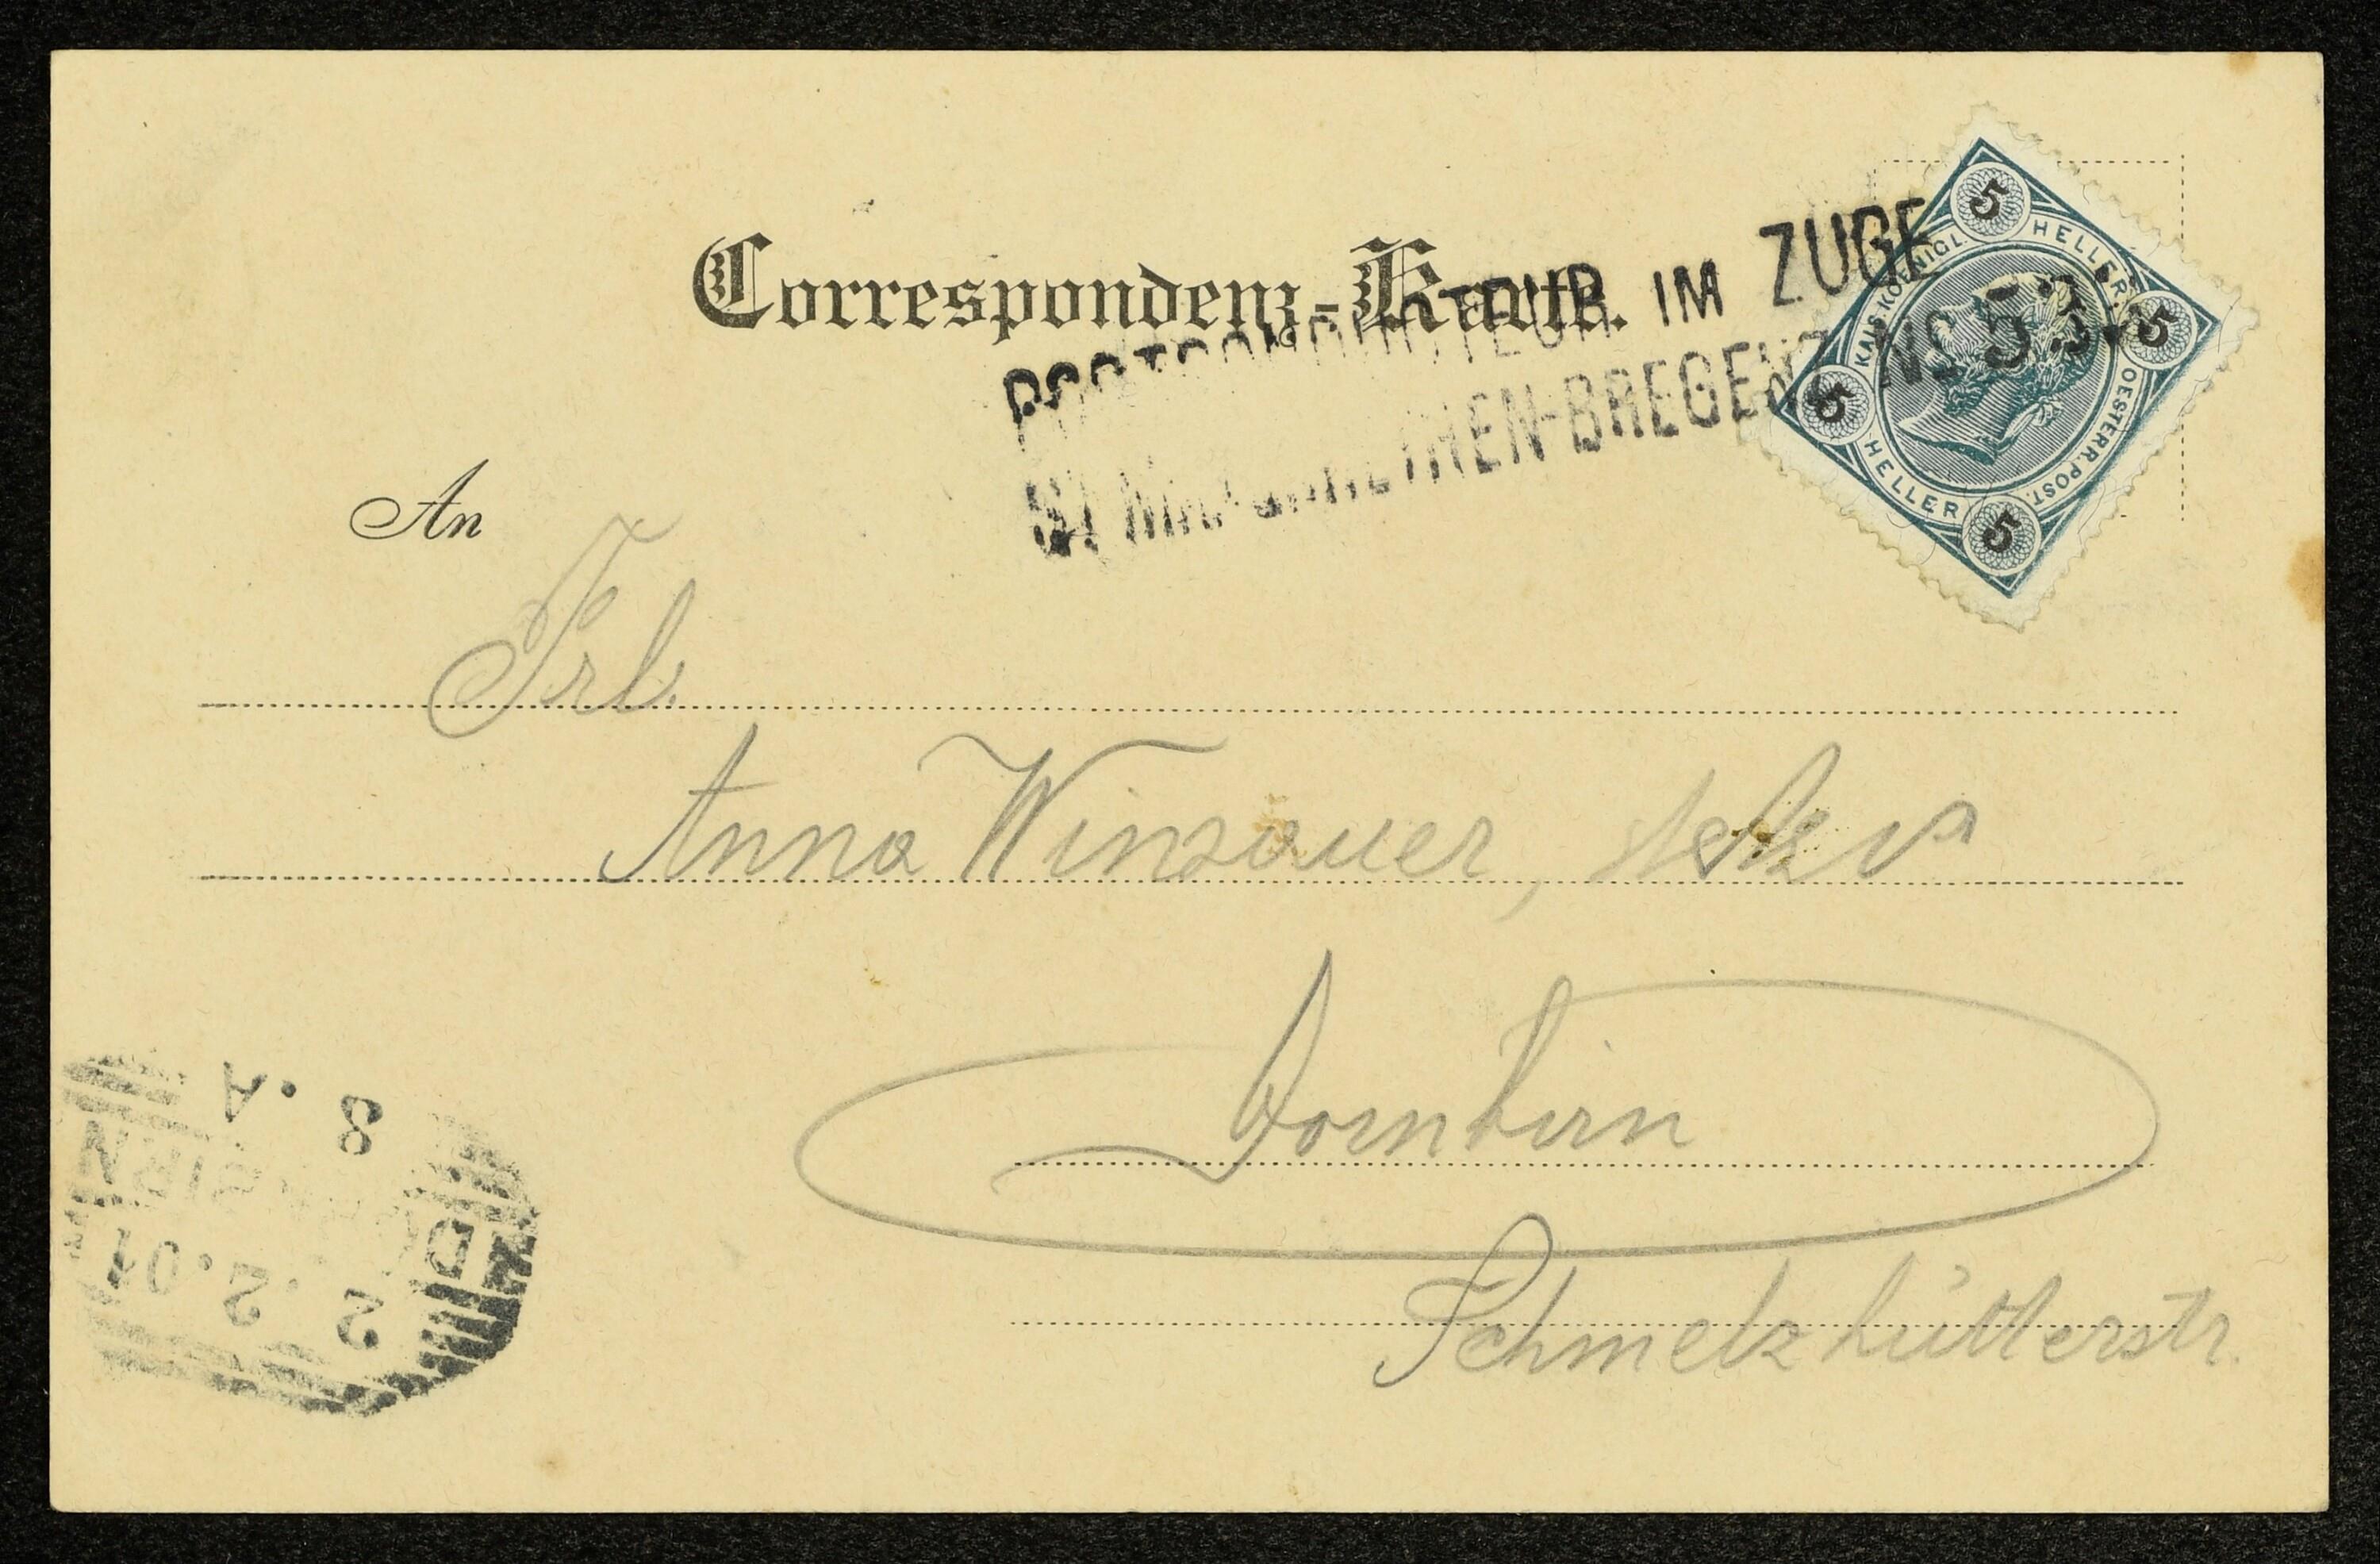 Correspondenz-Karte.
POSTCONDUCTEUR IM ZUGE
ST MARGARETHEN-BREGENZ NO 53.
KAIS. KOENIGL. OESTERR. POST.
5 HELLER 5
5 HELLER 5
An
Frl.
Anna Winsauer,
Dornbirn
Schmelzhütterstr.
8 . A
DORNBIRN
2 . 2 . 01